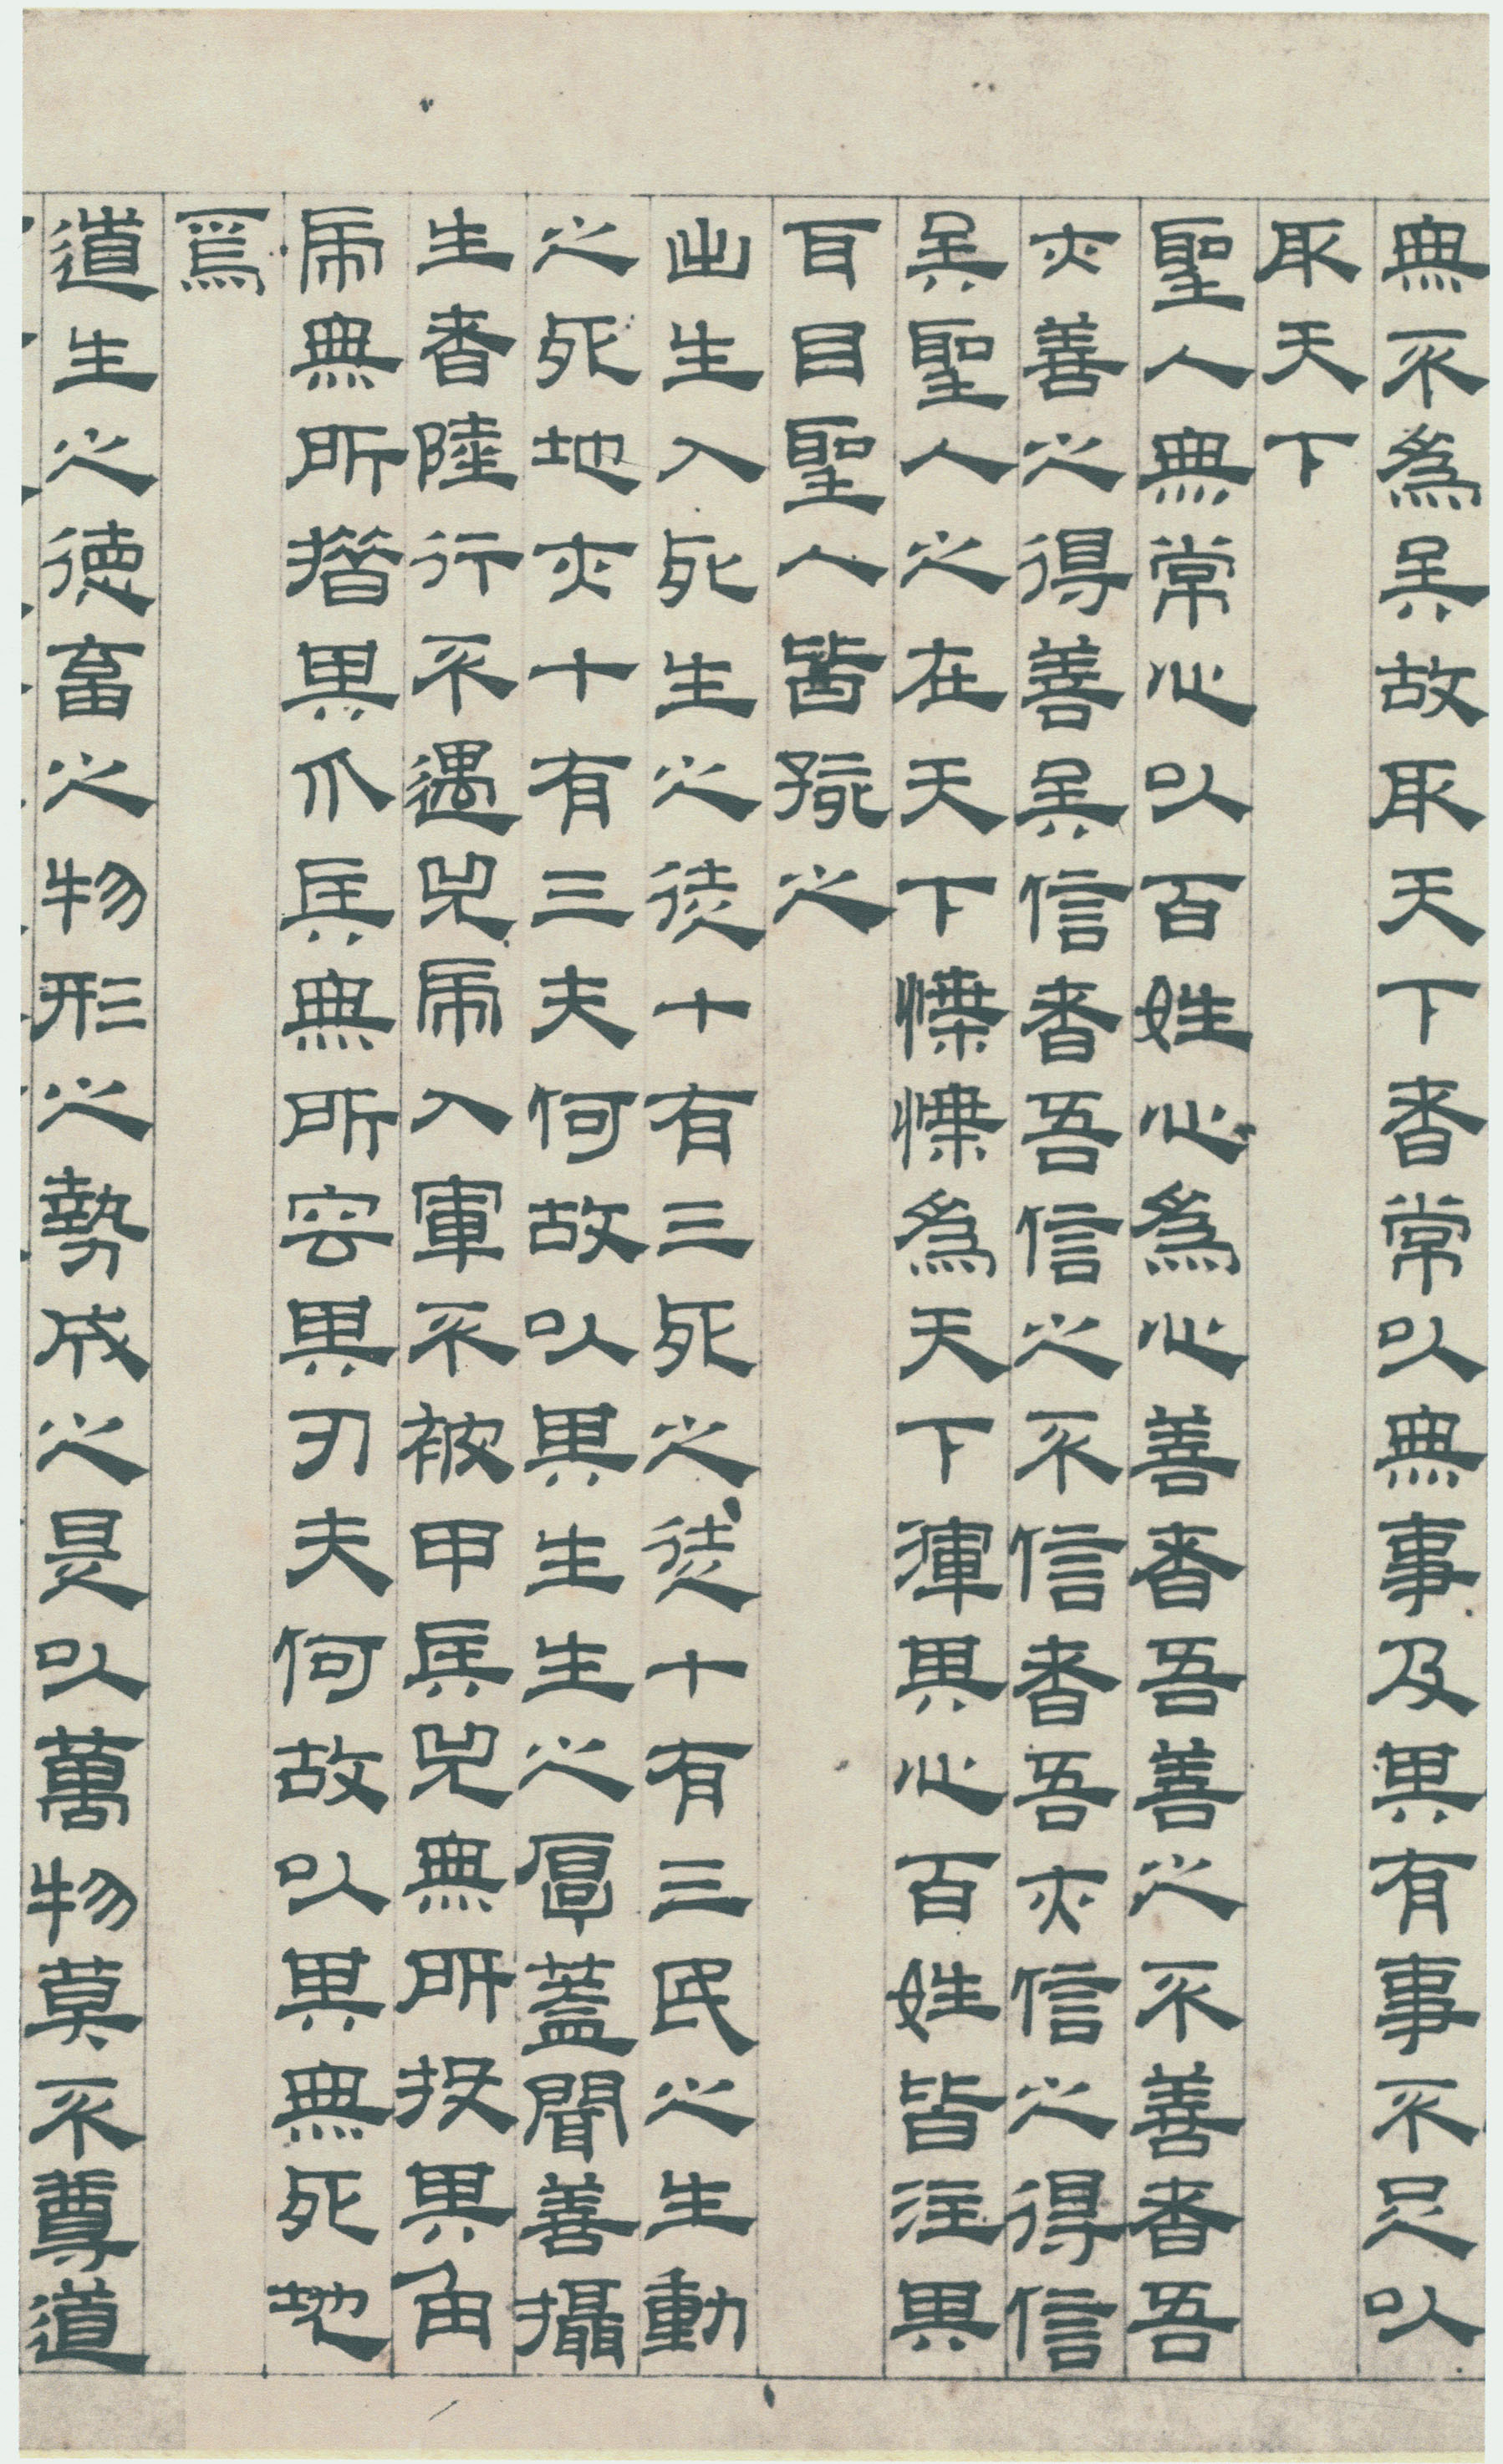 無不為矣故取天下者常以無事及其有事不足以
取天下
聖人無常心以百姓心為心善者吾善之不善者吾
亦善之得善矣信者吾信之不信者吾亦信之得信
矣聖人之在天下慄慄為天下渾其心百姓皆注其
耳目聖人皆孩之
出生入死生之徒十有三死之徒十有三民之生動
之死地亦十有三夫何故以其生生之厚蓋聞善攝
生者陸行不遇兕虎入軍不被甲兵兕無所投其角
虎無所措其爪兵無所容其刃夫何故以其無死地
焉
道生之德畜之物形之勢成之是以萬物莫不尊道